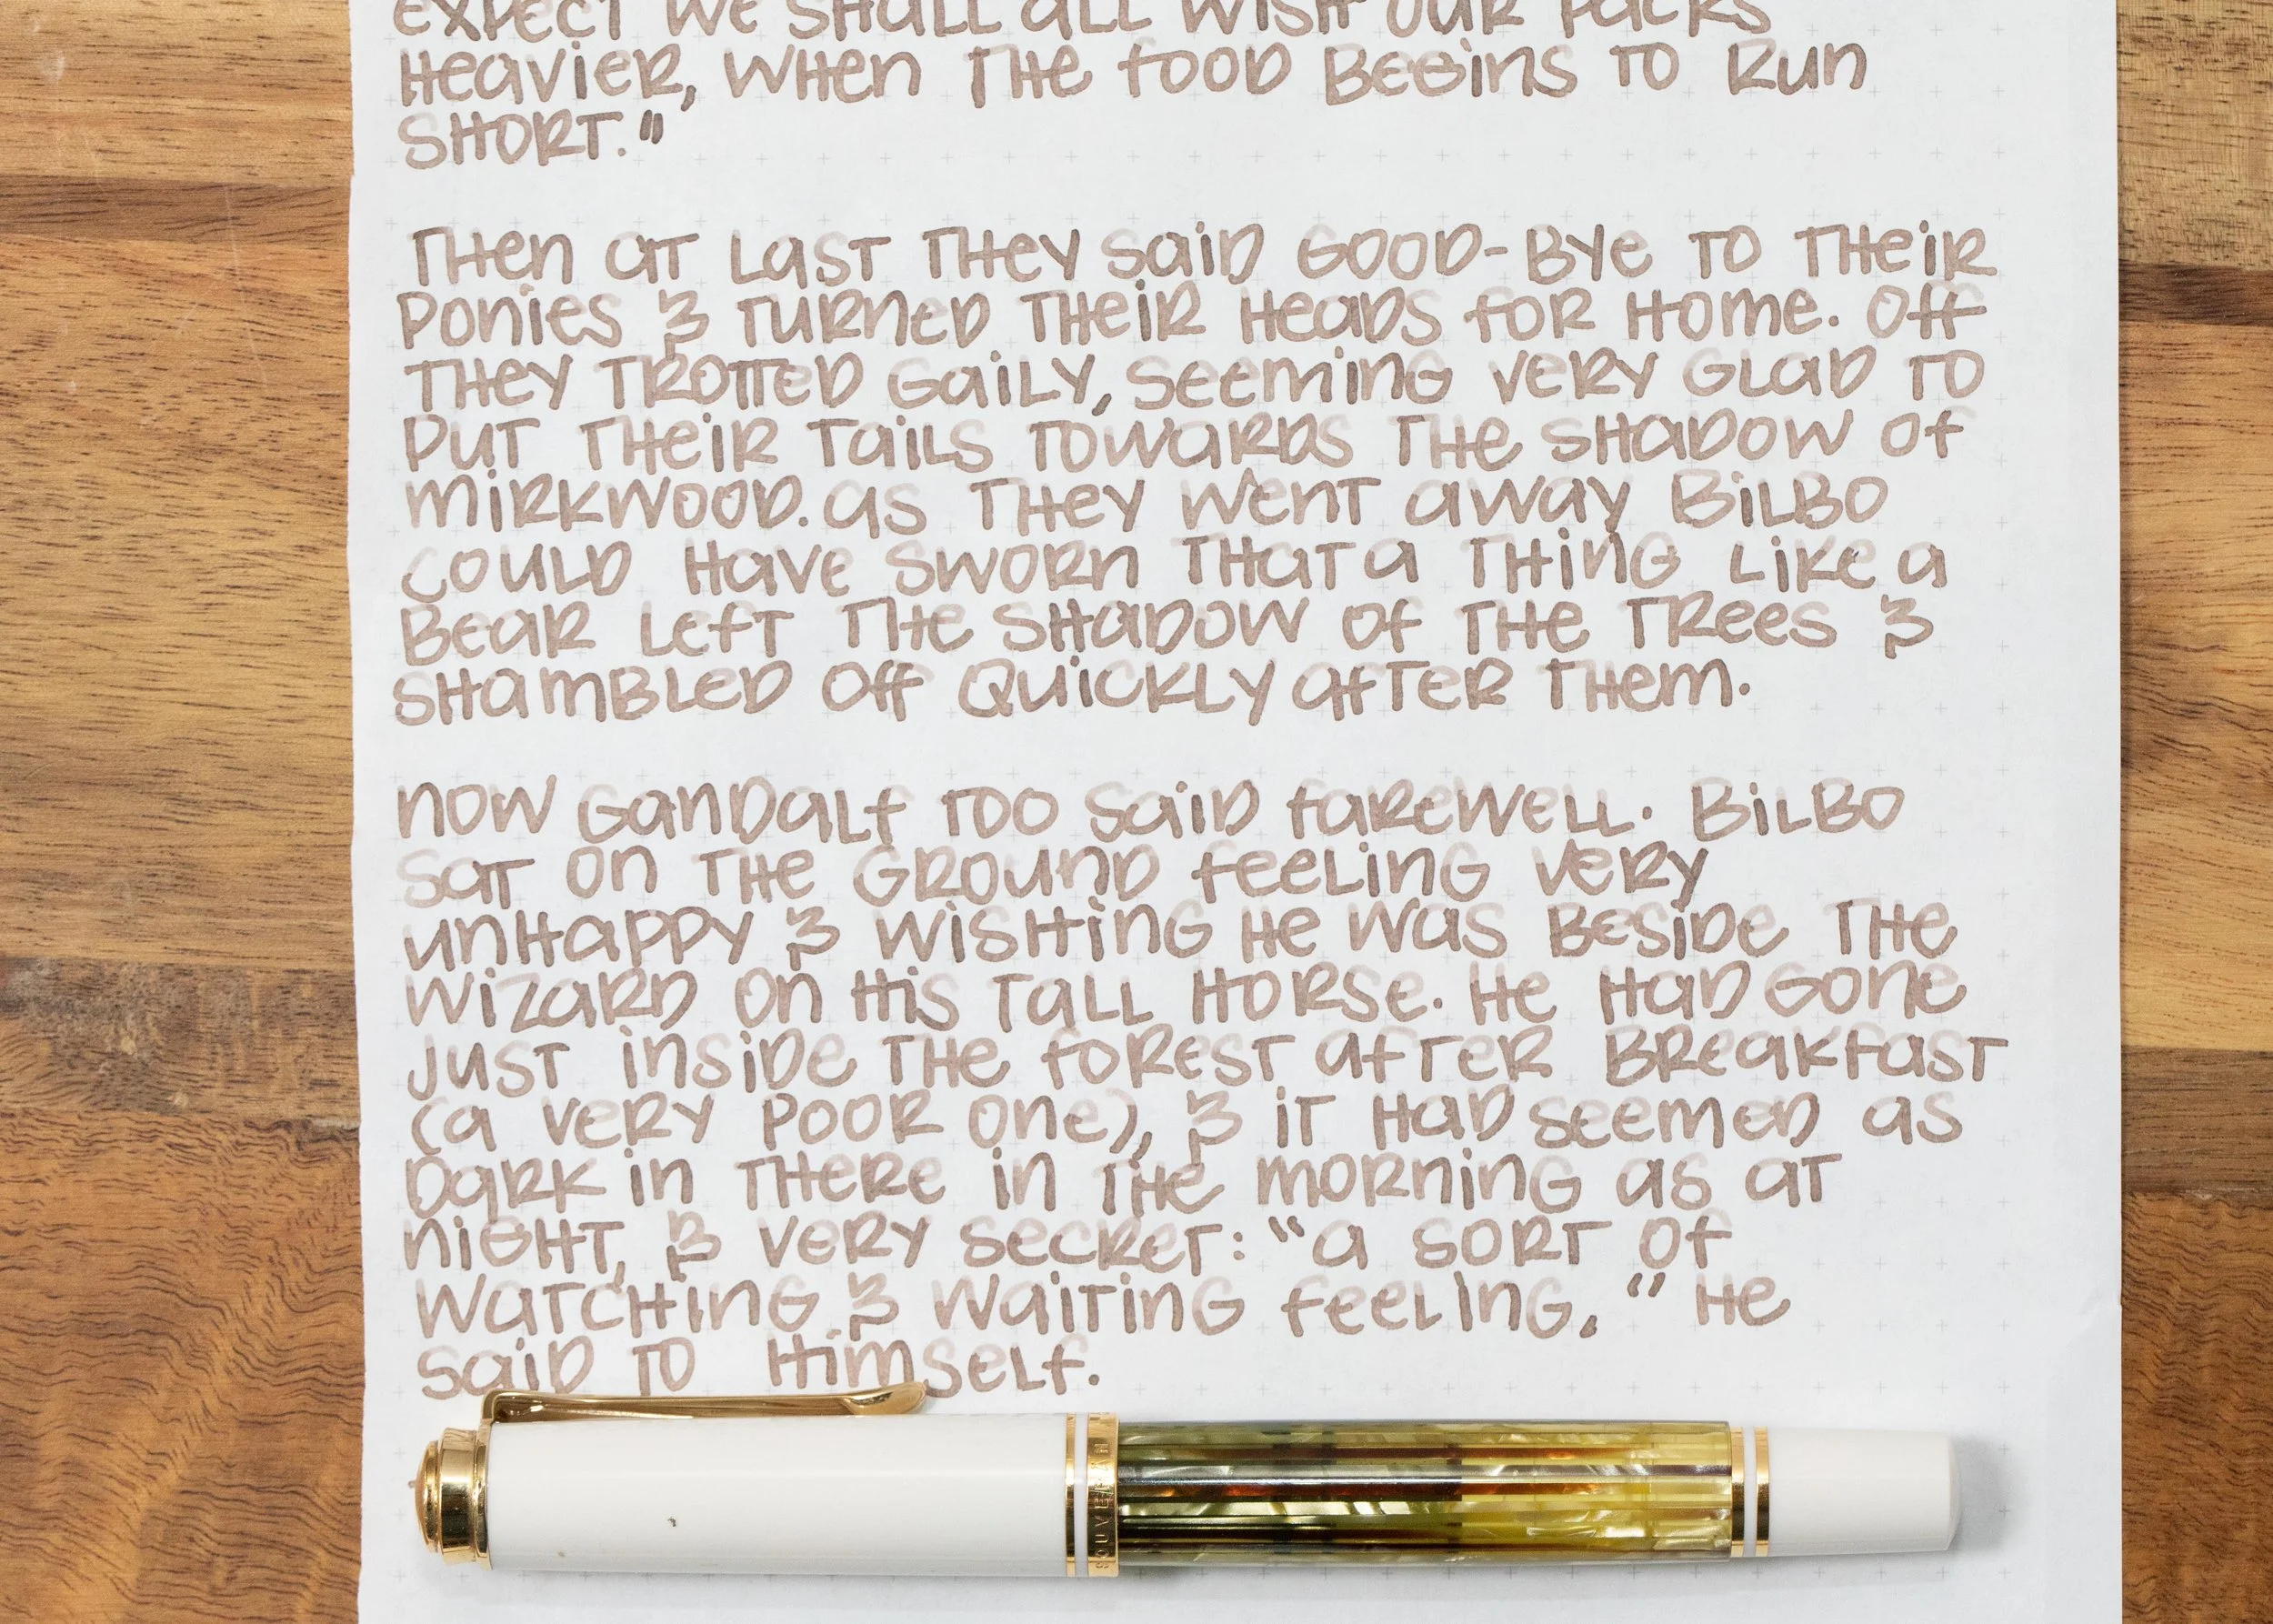 expect we shall all wish our packs
heavier, when the food begins to run
short."
Then at last they said good-bye to their
ponies & turned their heads for home. Off
they trotted gaily, seeming very glad to
put their tails towards the shadow of
Mirkwood. As they went away Bilbo
could have sworn that a thing like a
bear left the shadow of the trees &
shambled off quickly after them.
Now Gandalf too said farewell. Bilbo
sat on the ground feeling very
unhappy & wishing he was beside the
wizard on his tall horse. He had gone
just inside the forest after breakfast
(a very poor one), & it had seemed as
dark in there in the morning as at
night, & very secret: "a sort of
watching & waiting feeling," he
said to himself.
SOUVERÄN